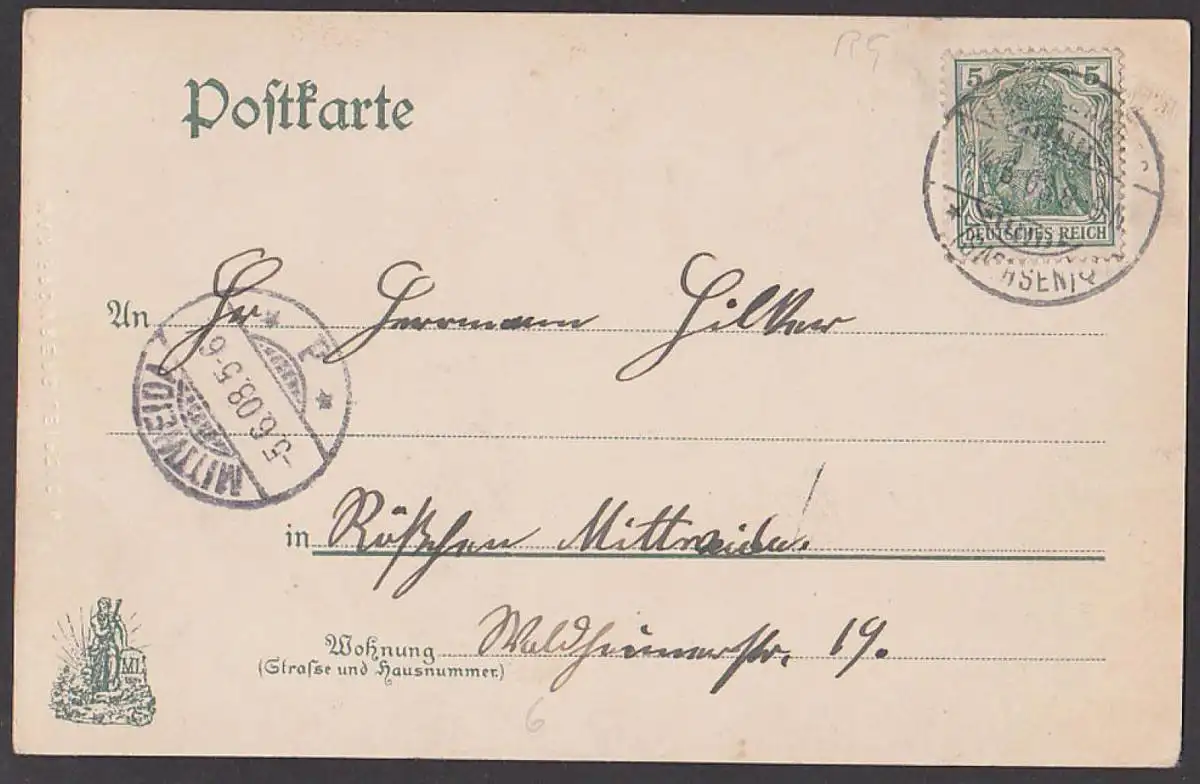 Postkarte
5 5
DEUTSCHES REICH
(SACHSEN)
An Hr Herrmann Hilker
MITTWEIDA
* P *
-5.6.08.5-6
in Rößchen Mittweida.
Wohnung Waldheimerstr. 19.
(Strasse und Hausnummer)
ML
6